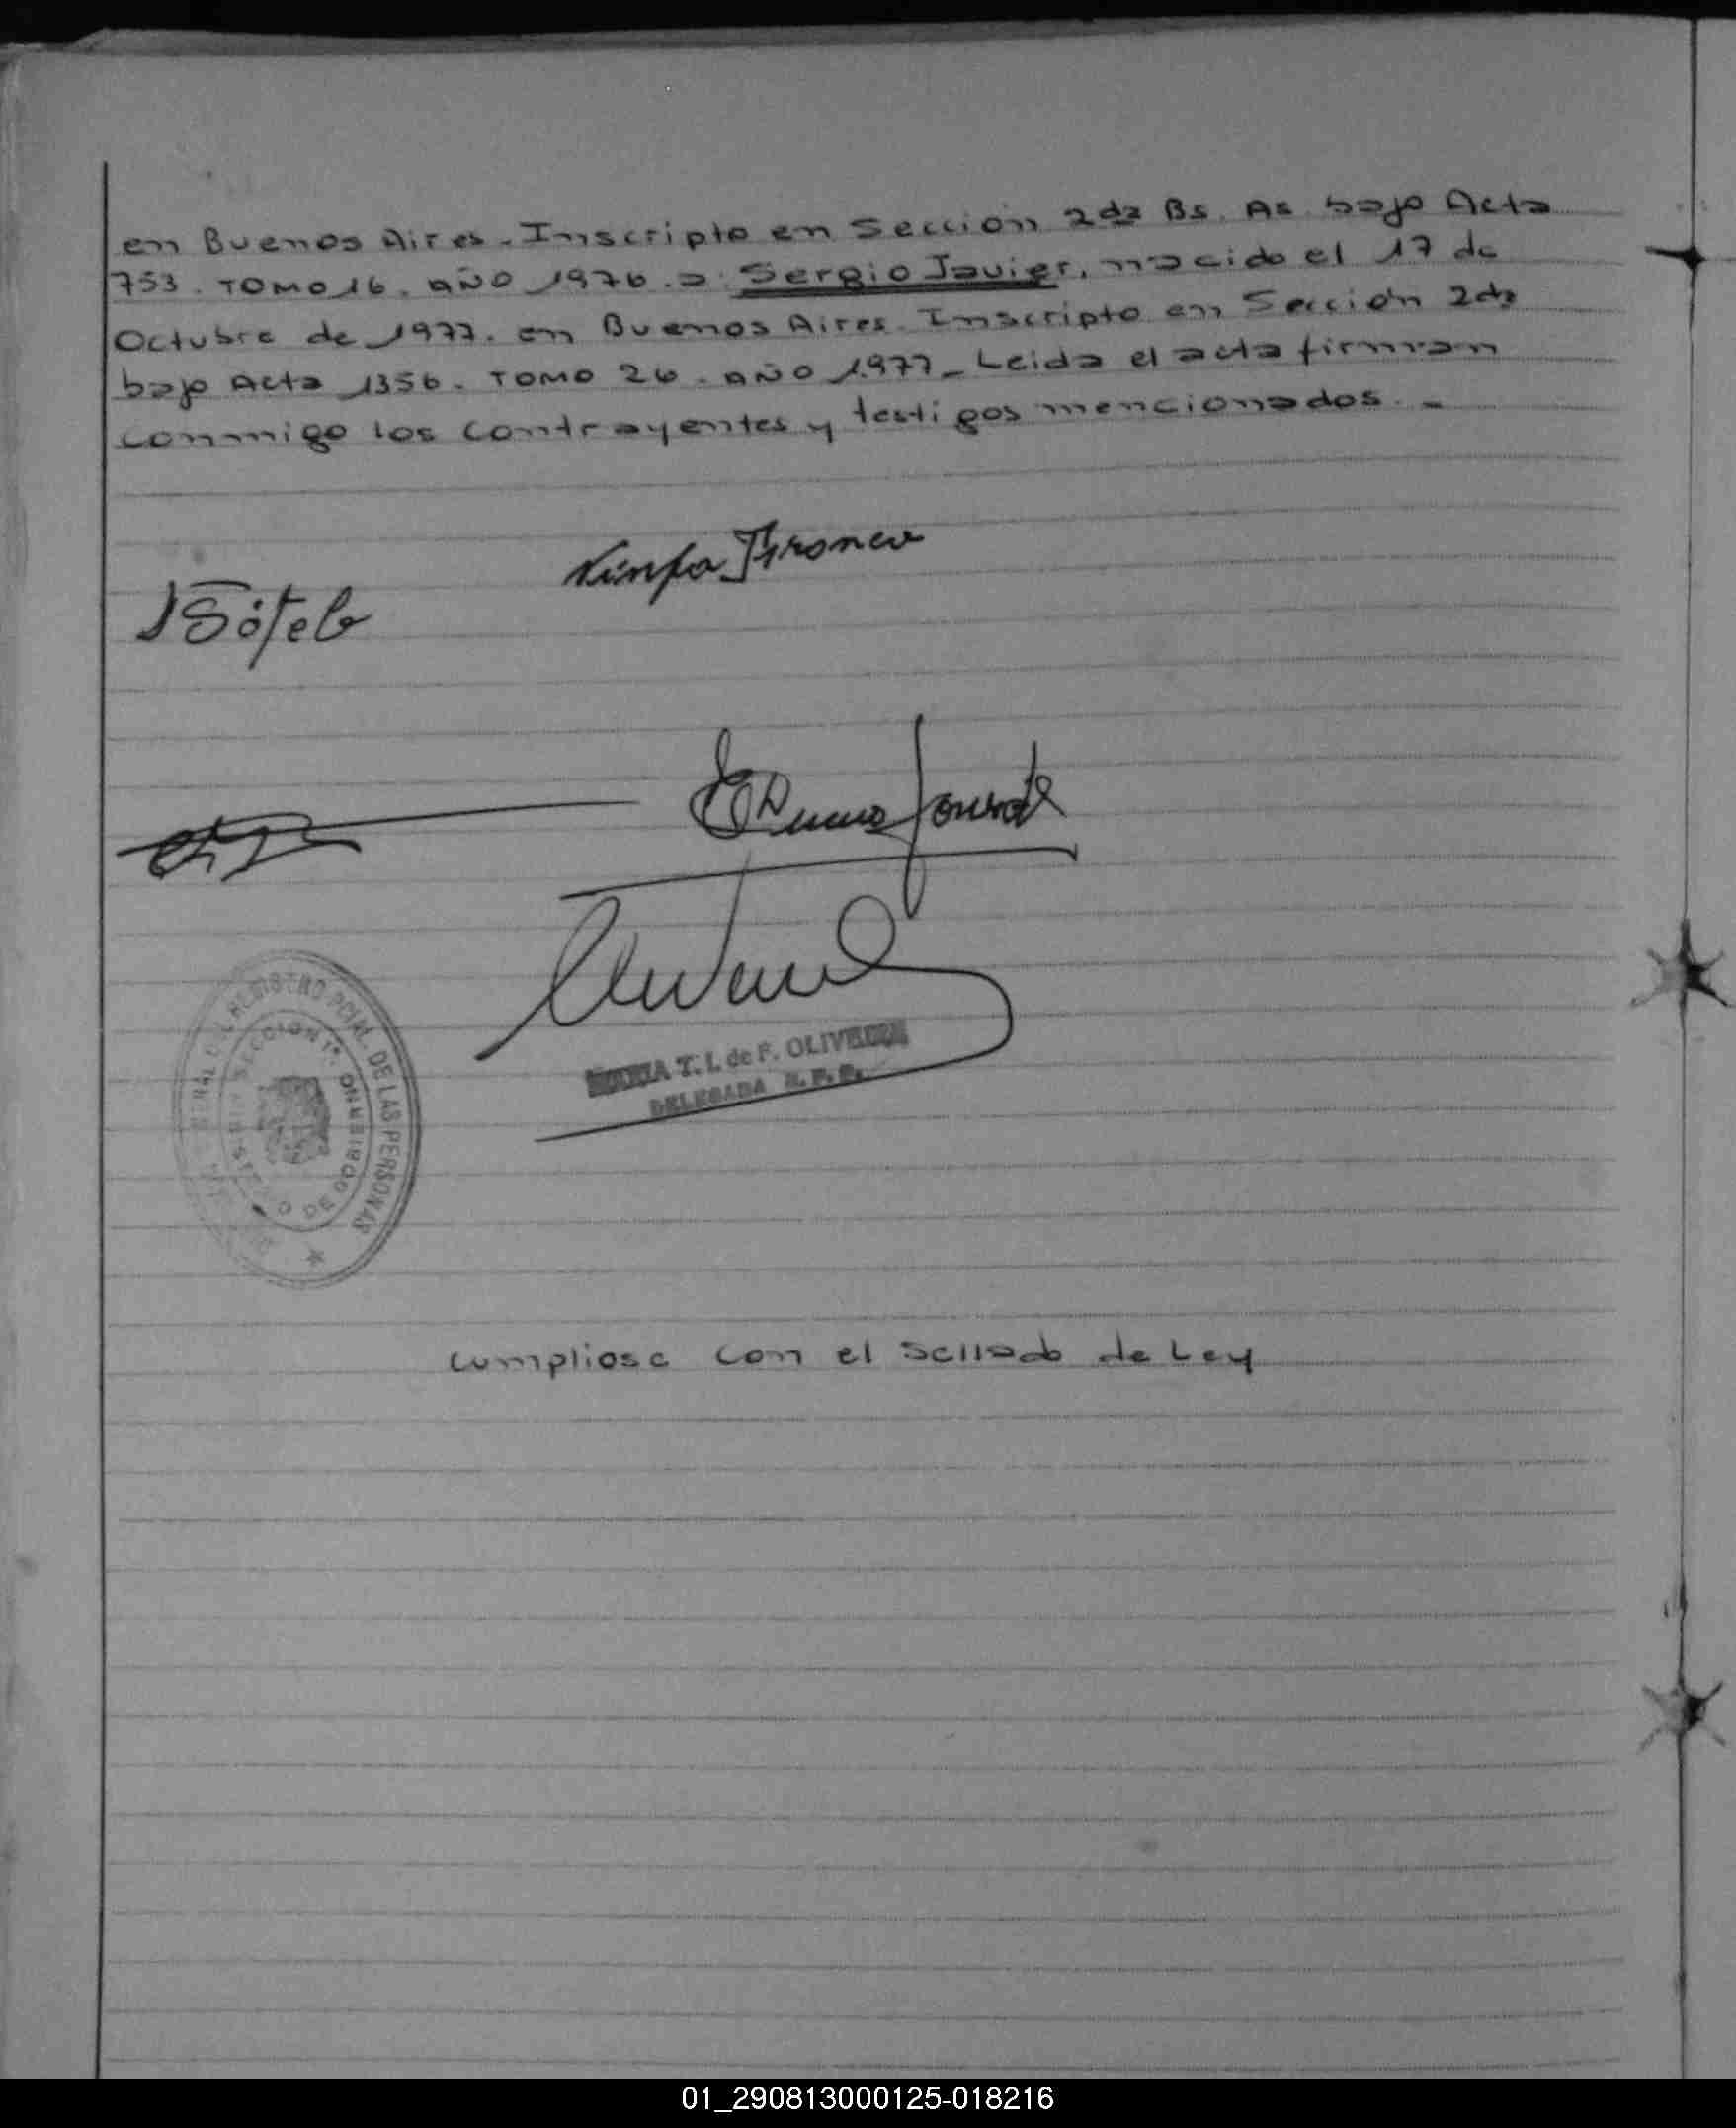 en Buenos Aires. Inscripto en Sección 2da Bs. As. bajo Acta
753. TOMO 16. AÑO 1976. a: Sergio Javier, nacido el 17 de
Octubre de 1977. en Buenos Aires. Inscripto en Sección 2da
bajo Acta 1356. TOMO 26. AÑO 1977_ Leida el acta firman
conmigo los contrayentes y testigos mencionados. _
Ninfa
Sótelo
MARIA T. I. de F. OLIVEIRA
DELEGADA R. P. P.
REGISTRO PCIAL. DE LAS PERSONAS
SECCION 1ª.
cumpliose con el sellado de Ley
01_290813000125-018216